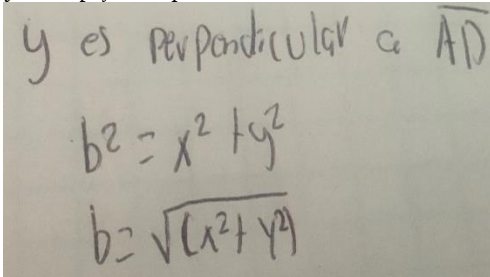 y es perpendicular a A̅D̅
b² = x² + y²
b = √(x² + y²)